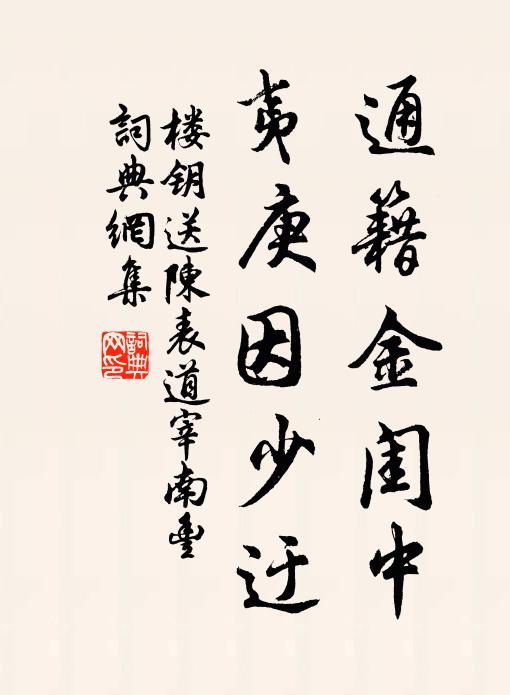 通籍金闺中
夷庚因少迂
楼钥送陳表道宰南豐
詞典網集
詞典網印